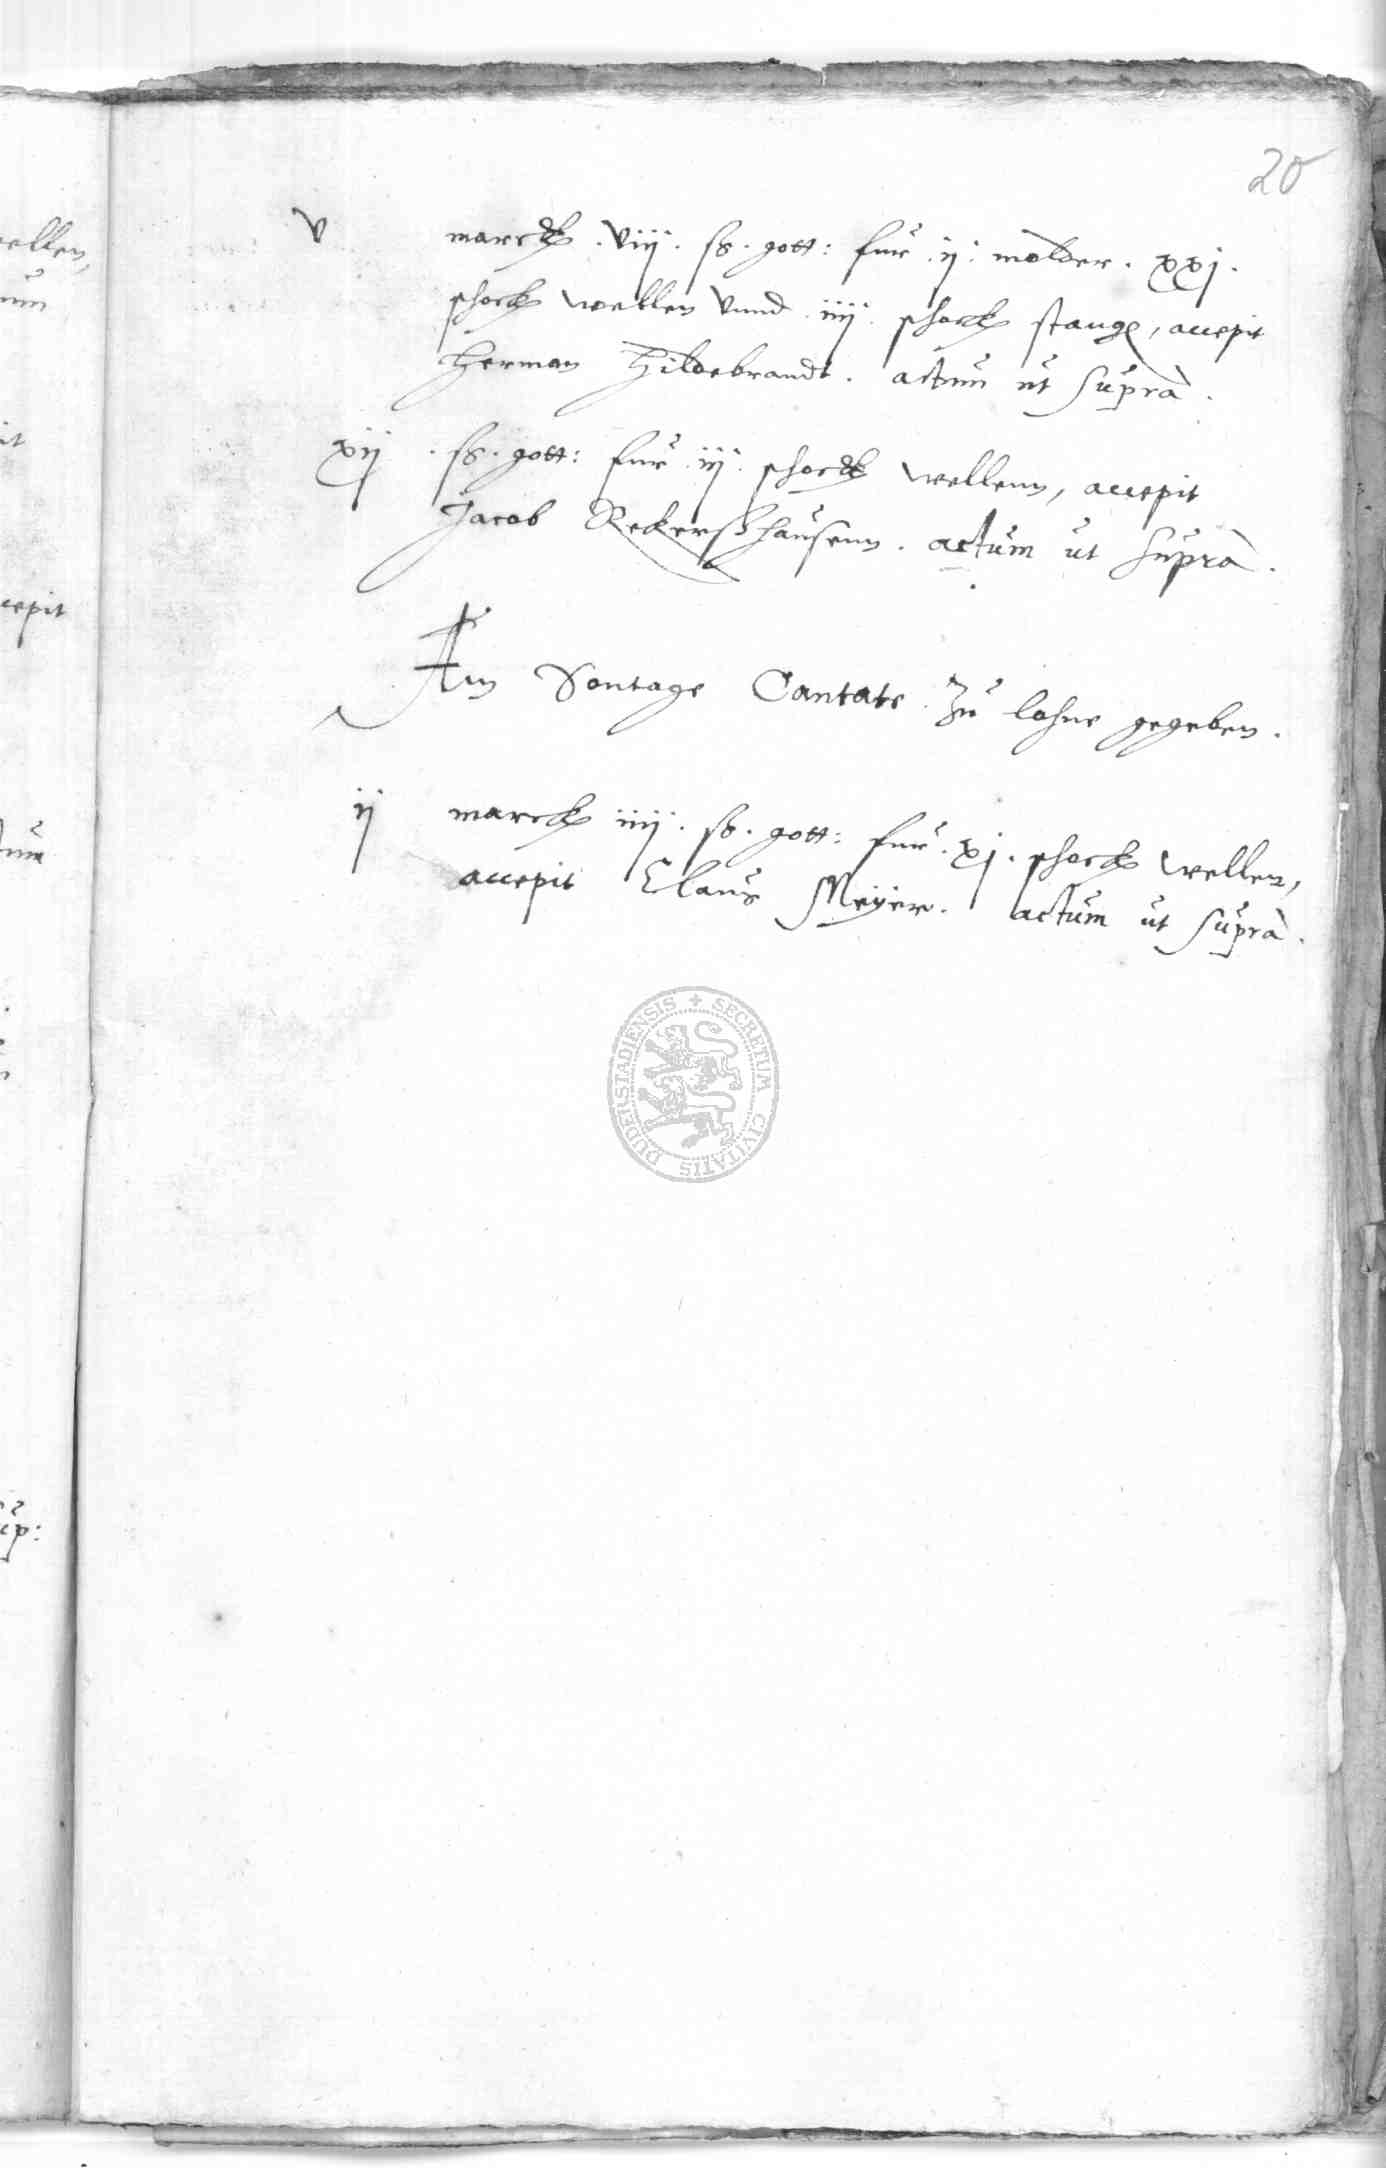 20
v marck . viij . ß . gott: fur . ij . molder . xxj .
schock wellen vnnd . iiij . schock stang, accepit
Herman Hildebrandt . actum ut supra .
xij . ß . gott: fur . iij . schock wellenn, accepit
Jacob Rekerßhausenn . actum ut supra .
Am Sontage Cantate . zu lohne gegeben .
ij marck iiij . ß . gott: fur . xj . schock wellen,
accepit Claus Meyer . actum ut supra .
SECRETUM CIVITATIS DUDERSTADIENSIS